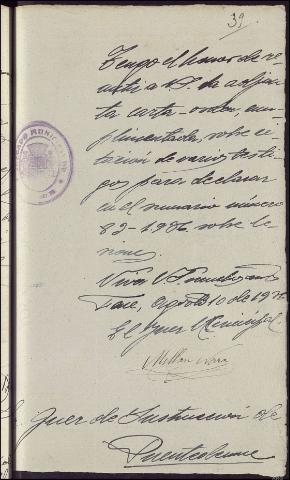 39
Tengo el honor de re-
mitir a V.S. la adjun-
ta carta-orden, cum-
plimentada, sobre ci-
tación de varios testi-
gos para declarar
en el sumario número
82-1936 sobre le-
siones.
Viva V.S. muchos años
agosto 10 de 1936
El Juez Municipal
JUZGADO MUNICIPAL
Juez de Instrucción de
Puentedeume